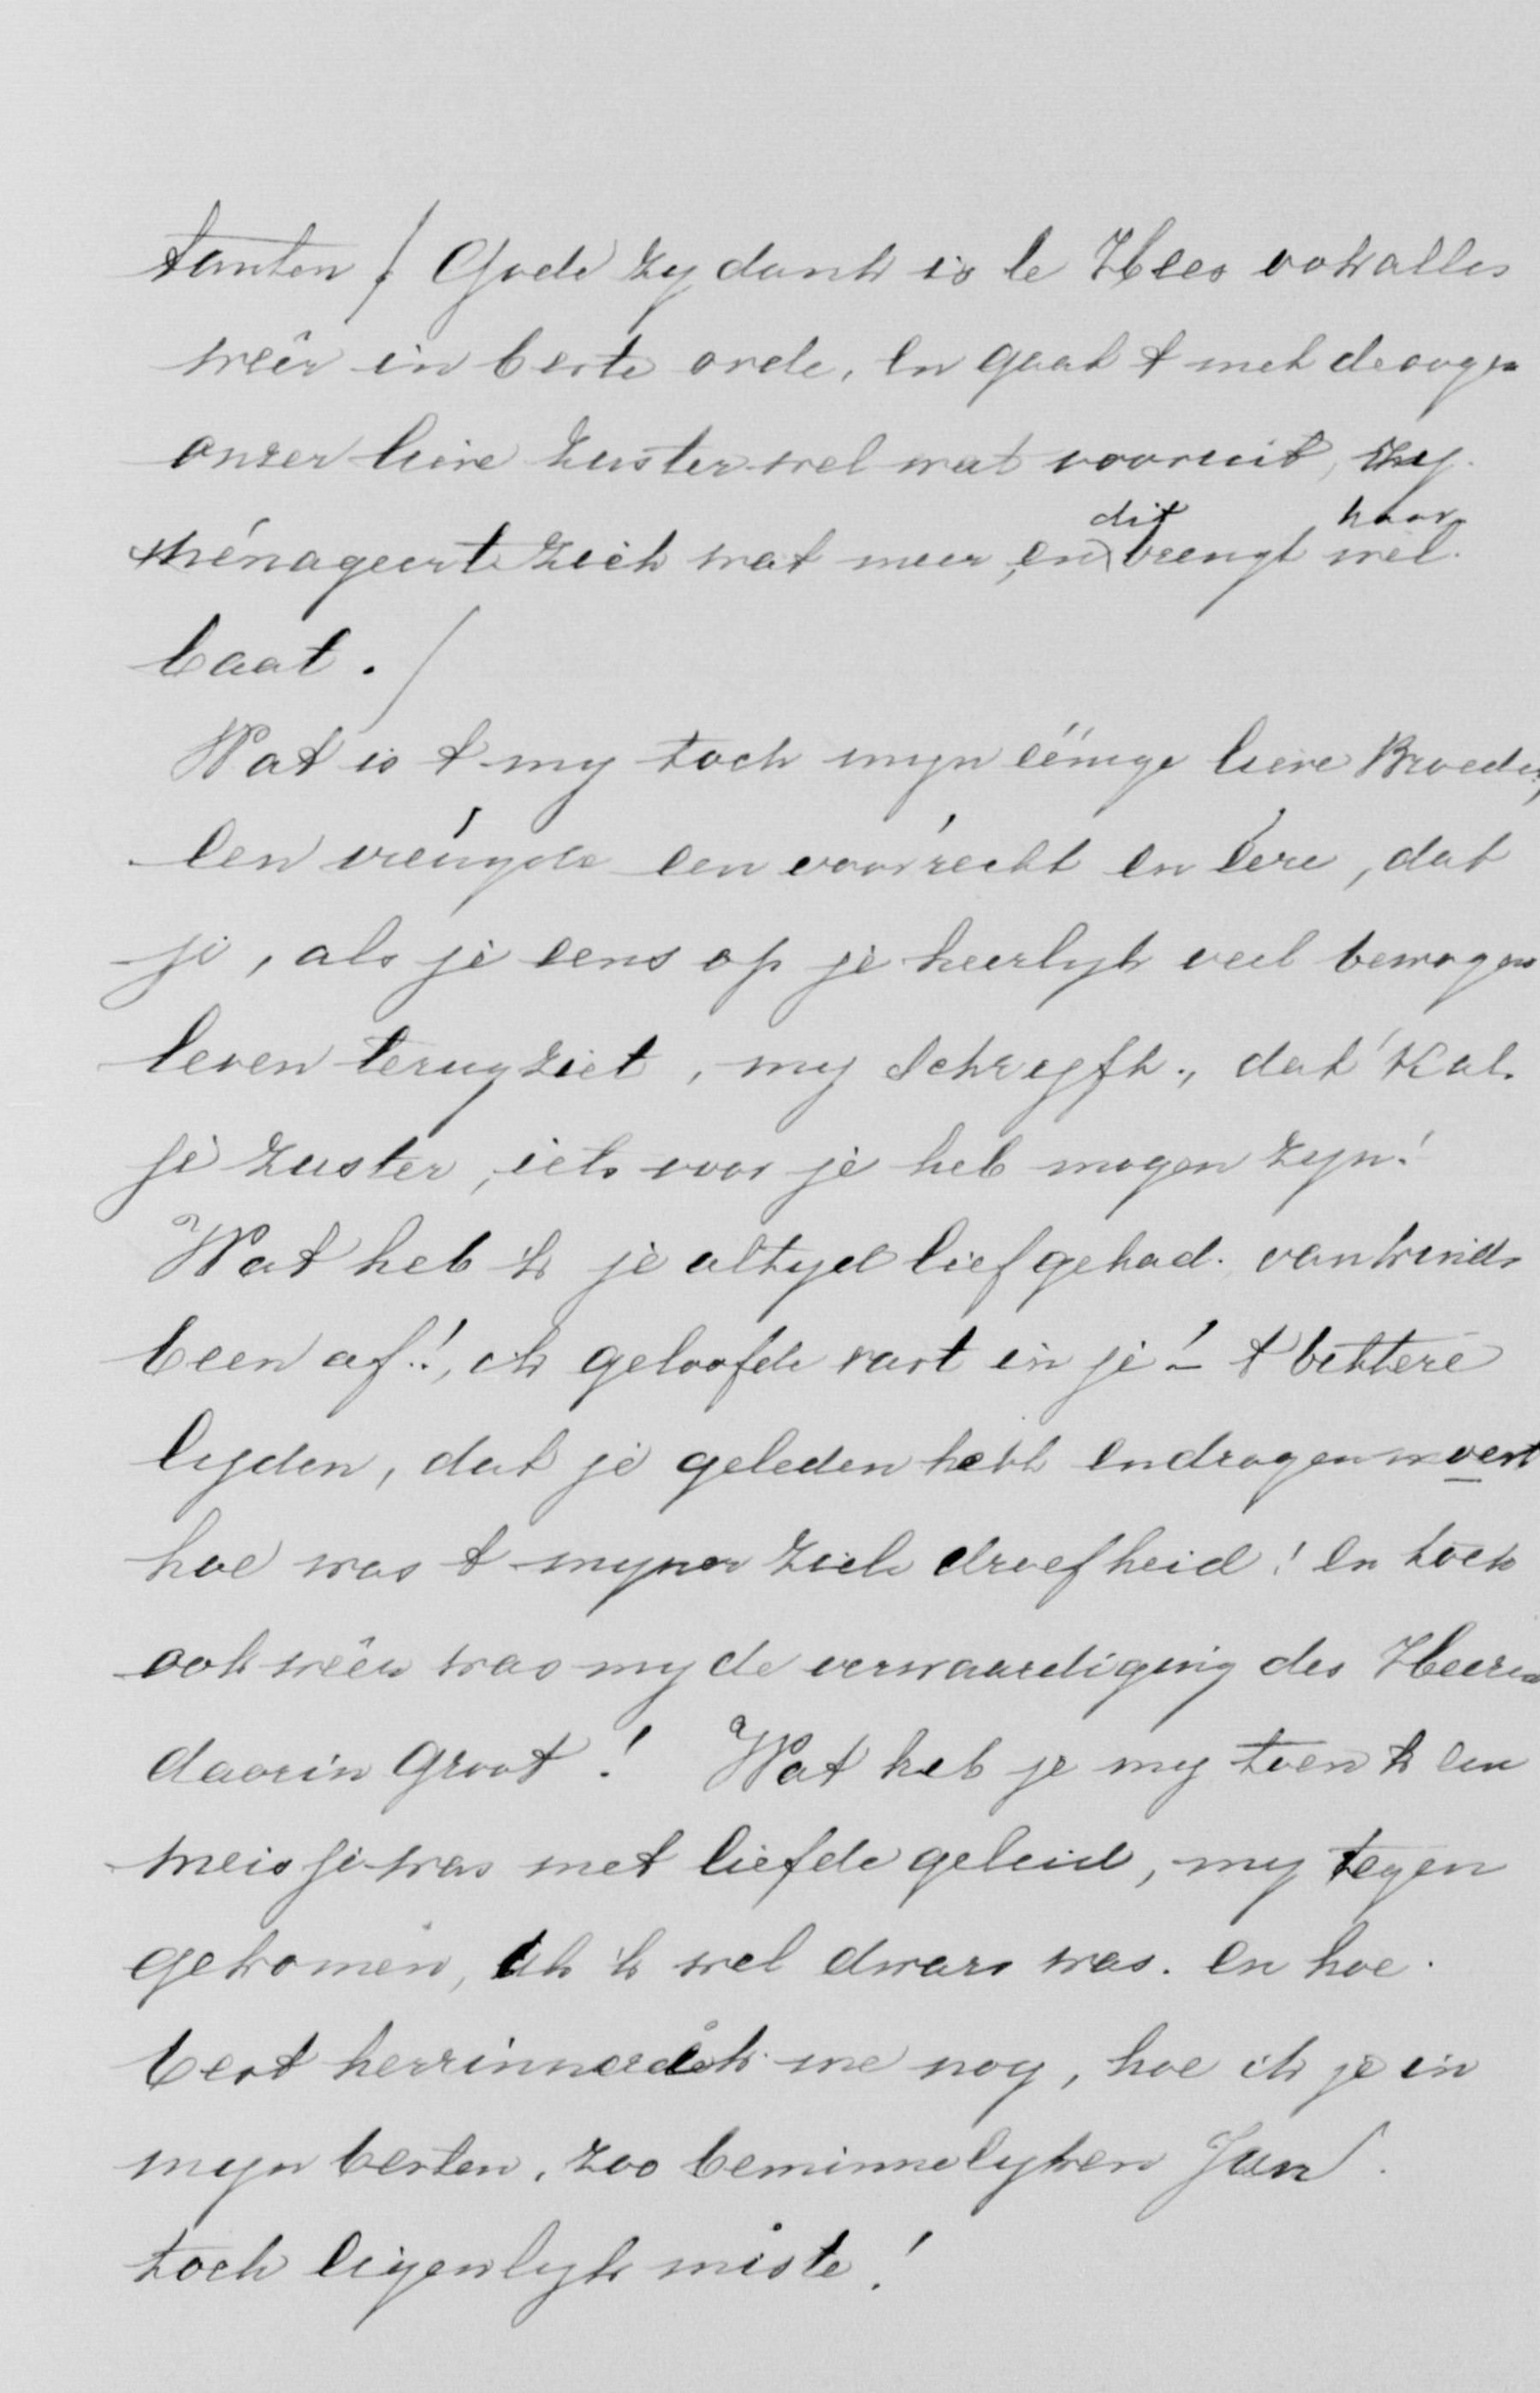 tanten / Gode zy dank is te Hees ook alles
weêr in beste orde, en gaat t met de oogen
onzer lieve zuster wel wat vooruit, zy
ménageert zich wat meer, en dit brengt haar wel
baat. /
Wat is t my toch myn éénige lieve Broeder,
een vreugde een voorrecht en eere, dat
je, als je eens op je heerlyk veel bewogen
leven terugziet, my schryft, dat 'k als
je zuster, iets voor je heb mogen zyn!
Wat heb ik je altyd liefgehad van kinds
been af!, ik geloofde vast in je! - t bittere
lyden, dat je geleden hebt en dragen moest
hoe was t myner ziele droefheid! en toch
ook weêr was my de verwaardiging des Heeren
daarin groot! Wat heb je my toen k een
meisje was met liefde geleid, my tegen
gekomen, als 'k wel dwars was. en hoe
best herrinner ik me nog, hoe ik je in
myn besten, zoo beminnelyken Jan
toch eigenlyk miste!